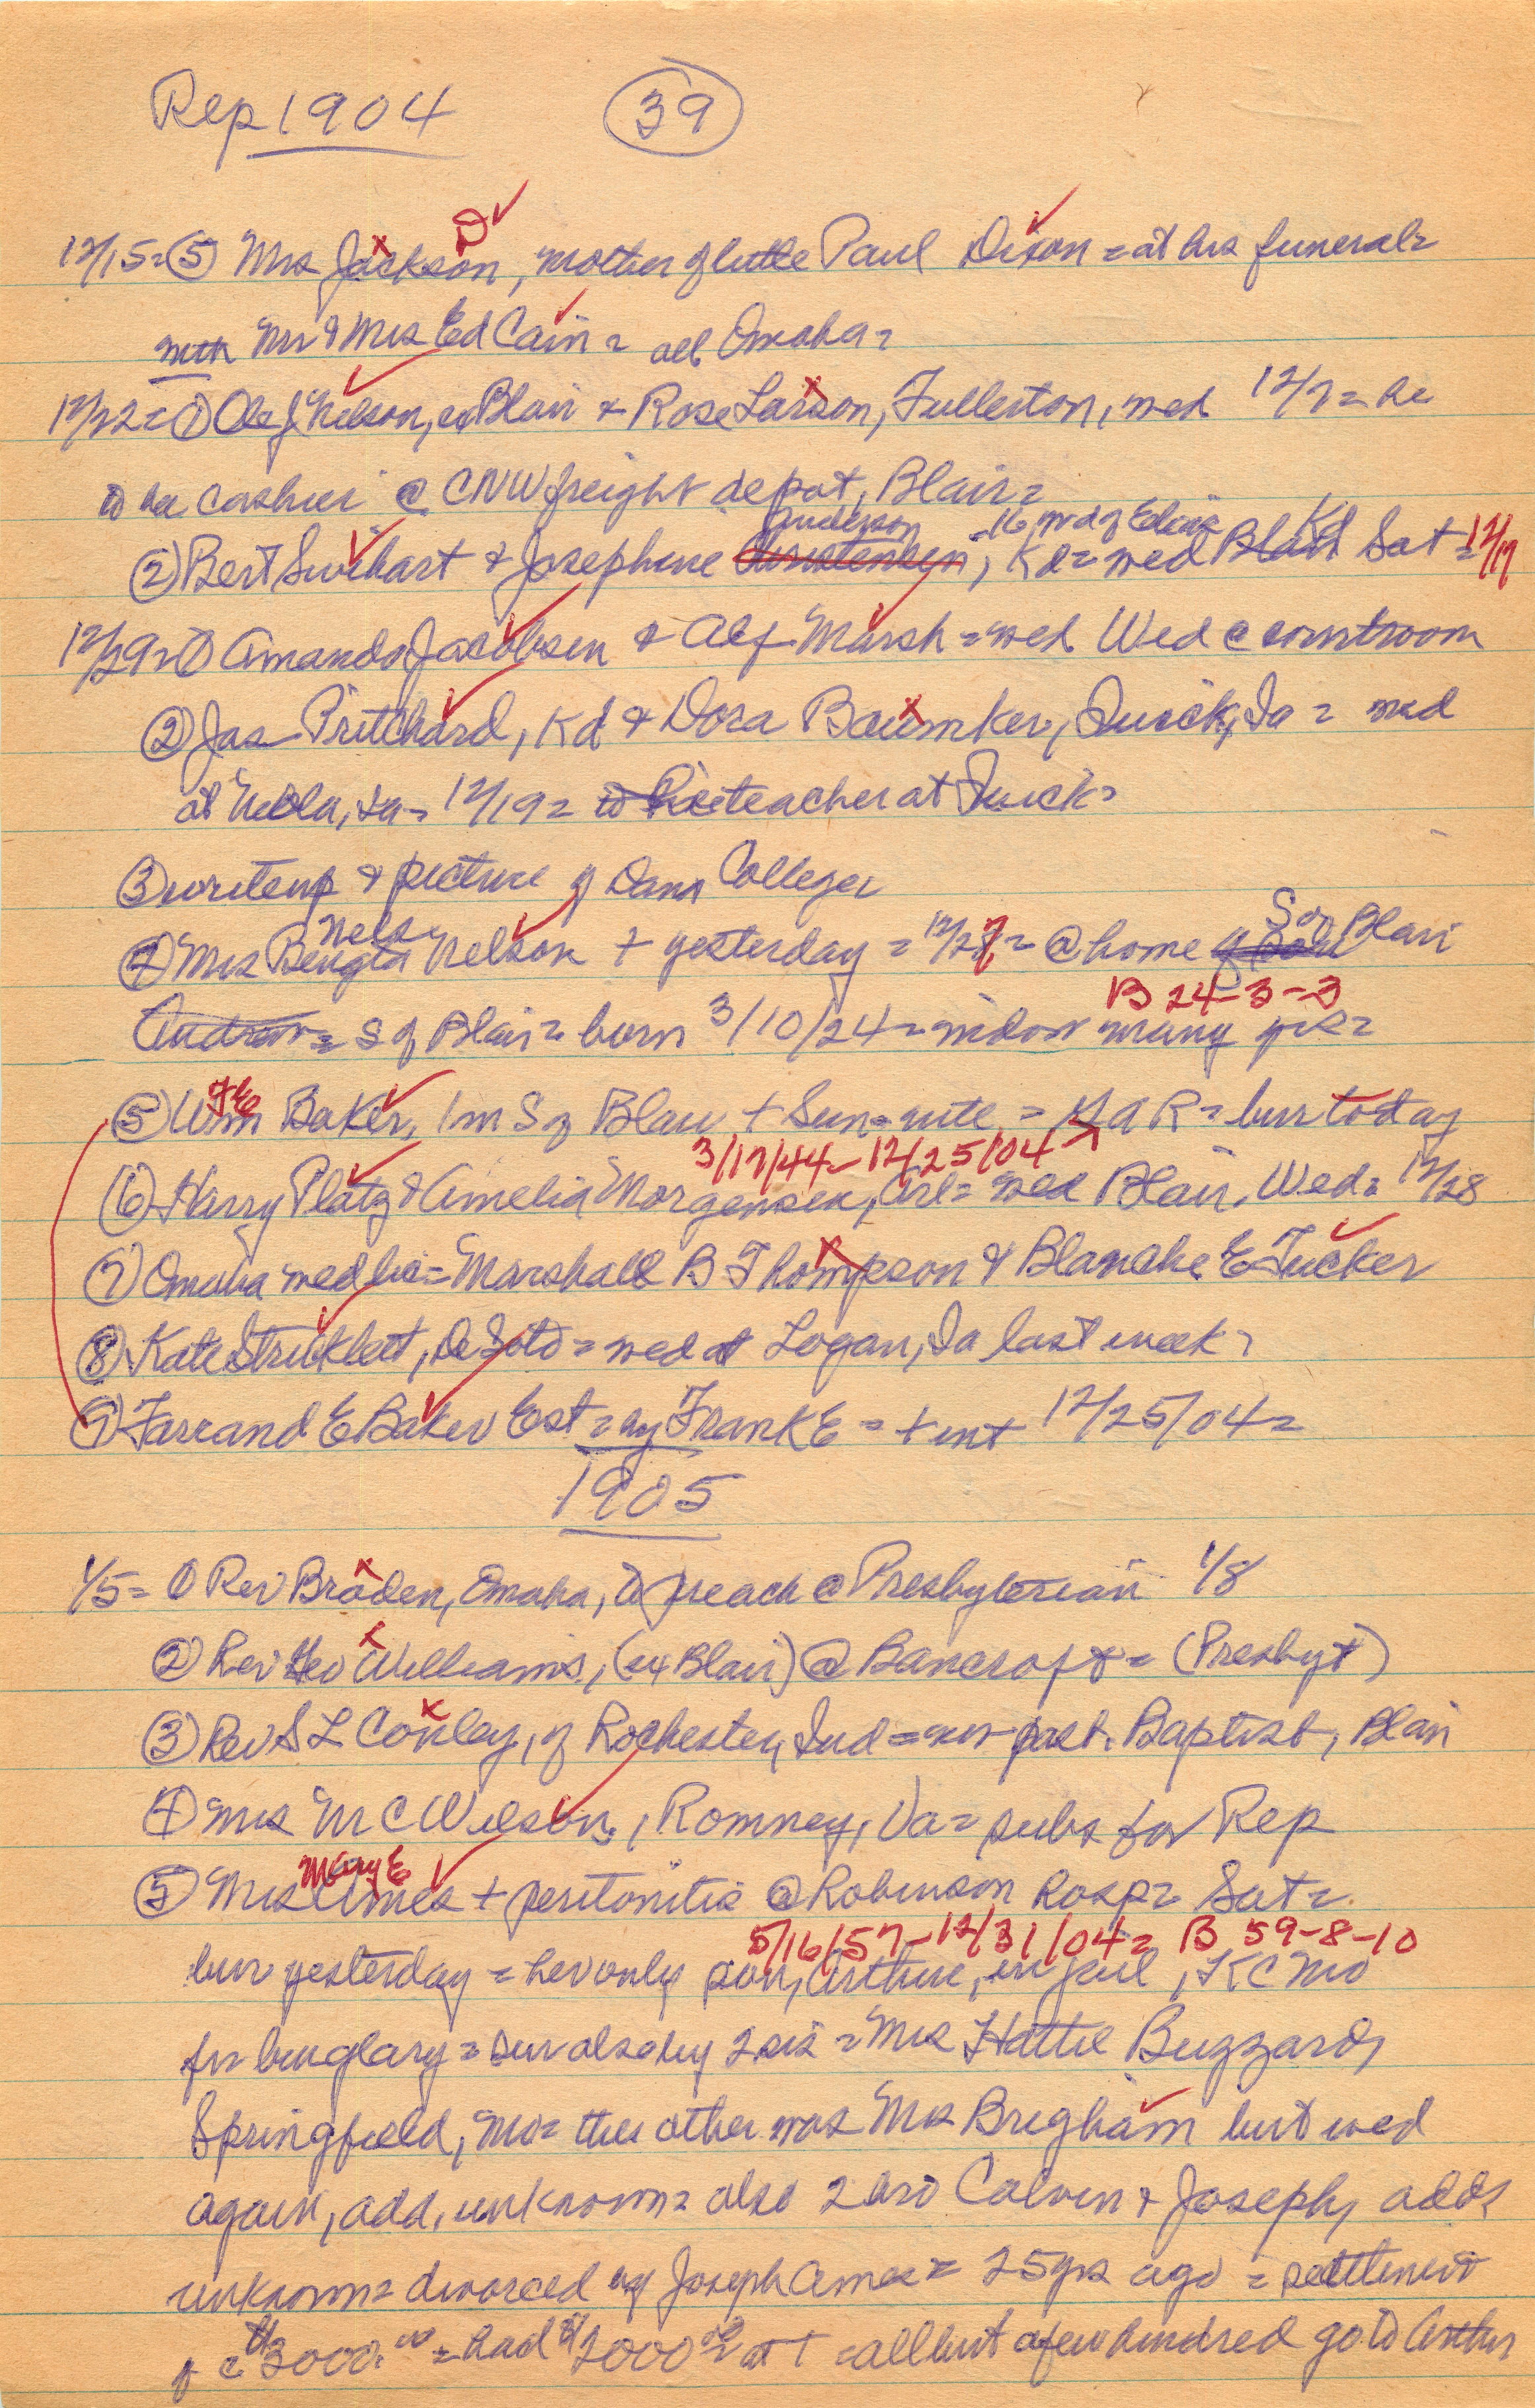 Rep 1904 39
D
12/15= 5 Mrs Jackson, mother of little Paul Dixon = at his funeral=
with Mr & Mrs Ed Cain = all Omaha=
12/22= 1 Ole J Nelson, ex Blair & Rose Larson, Fullerton, wed 12/7= he
to be cashier @ CNW freight depot, Blair=
Anderson -16 Kd
2 Bert Swihart & Josephine , Kd= wed Blair Sat = 12/17
12/29= 1 Amanda Jacobsen & Alf Marsh = wed Wed @ courtroom
2 Jas Pritchard, Kd & Dora Baumker, Quick, Ia = wed
at Neola, Ia= 12/19= to teacher at Quick=
3 writeup & picture of Dana College
Nels S of
4 Mrs Bengta Nelson + yesterday = 12/27= @ home of son Blair
B 24-3-3
Andrew = S of Blair= born 3/10/24= widow many yrs=
FE
5 Wm Baker, 1m S of Blair + Sun-nite = GAR = bur today
3/17/44-12/25/04
6 Harry Platz & Amelia Morgensen, Arl= wed Blair, Wed= 12/28
7 Omaha wed lic= Marshall B Thompson & Blanche E Tucker
8 Kate Stricklett, De Soto = wed at Logan, Ia last week=
9 Farrand E Baker Est = by Frank E = + int 12/25/04=
1905
1/5= 1 Rev Braden, Omaha, to preach @ Presbyterian 1/8
2 Rev Geo Williams, (ex Blair) @ Bancroft = (Presbyt)
3 Rev S L Conley, of Rochester, Ind = new past. Baptist, Blair
4 Mrs M C Wilson, Romney, Va= subs for Rep
Mary E
5 Mrs Ames + peritonitis @ Robinson hosp= Sat=
5/16/57-12/31/04= B 59-8-10
bur yesterday = her only son, Arthur, in jail, KC Mo
for burglary = sur also by 2 sis = Mrs Hattie Buzzard,
Springfield, Mo= the other was Mrs Brigham but wed
again, add, unknown= also 2 bro Calvin & Joseph, adds
unknown= divorced of Joseph Ames = 25 yrs ago = settlement
of c $3000.00 = had $2000.00 at + = all but a few hundred go to Arthur